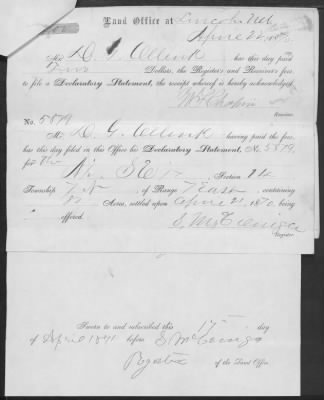 Land Office at Lincoln Neb
April 22 1870
Mr D. G.
has this day paid
Two Dollars, the Register's and Receiver's fees
to file a Declaratory Statement, the receipt whereof is hereby acknowledged.
Receiver.
No. 5879
Mr D. G. having paid the fees,
has this day filed in this Office his Declaratory Statement, No 5879,
for the
N½ S E ¼ Section 14
Township of Range 7 East, containing
80 Acres, settled upon April 21, 1870, being
offered.
S. McConiga
Register.
Sworn to and subscribed this 17 day
of April 1871 before S McConiga
Register of the Land Office.